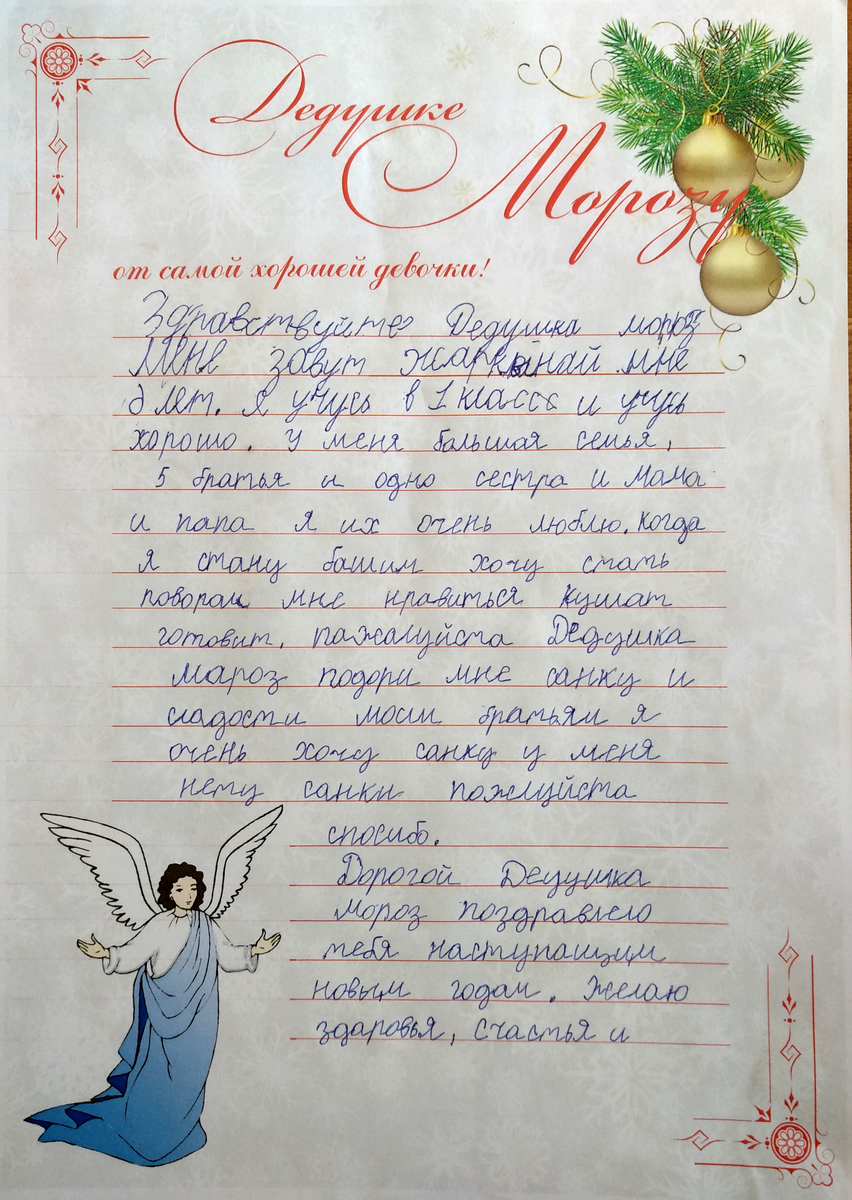 Дедушке
Морозу
от самой хорошей девочки!
Здравствуйте Дедушка мороз
Мене завут мне
лет. Я учусь в 1 классе и учусь
хорошо. У меня большая семья,
5 братья и одно сестра и мама
и папа я их очень люблю. Когда
я стану башим хочу стать
поворам мне нравиться кушат
готовит. пажалуйста Дедушка
Мароз подори мне санку и
сладости моим братьям я
очень хочу санку у меня
нету санки пожалуйста
спосибо.
Дорогой Дедушка
мороз поздравляю
тебя наступающим
новым годам. Желаю
здаровья, счастья и